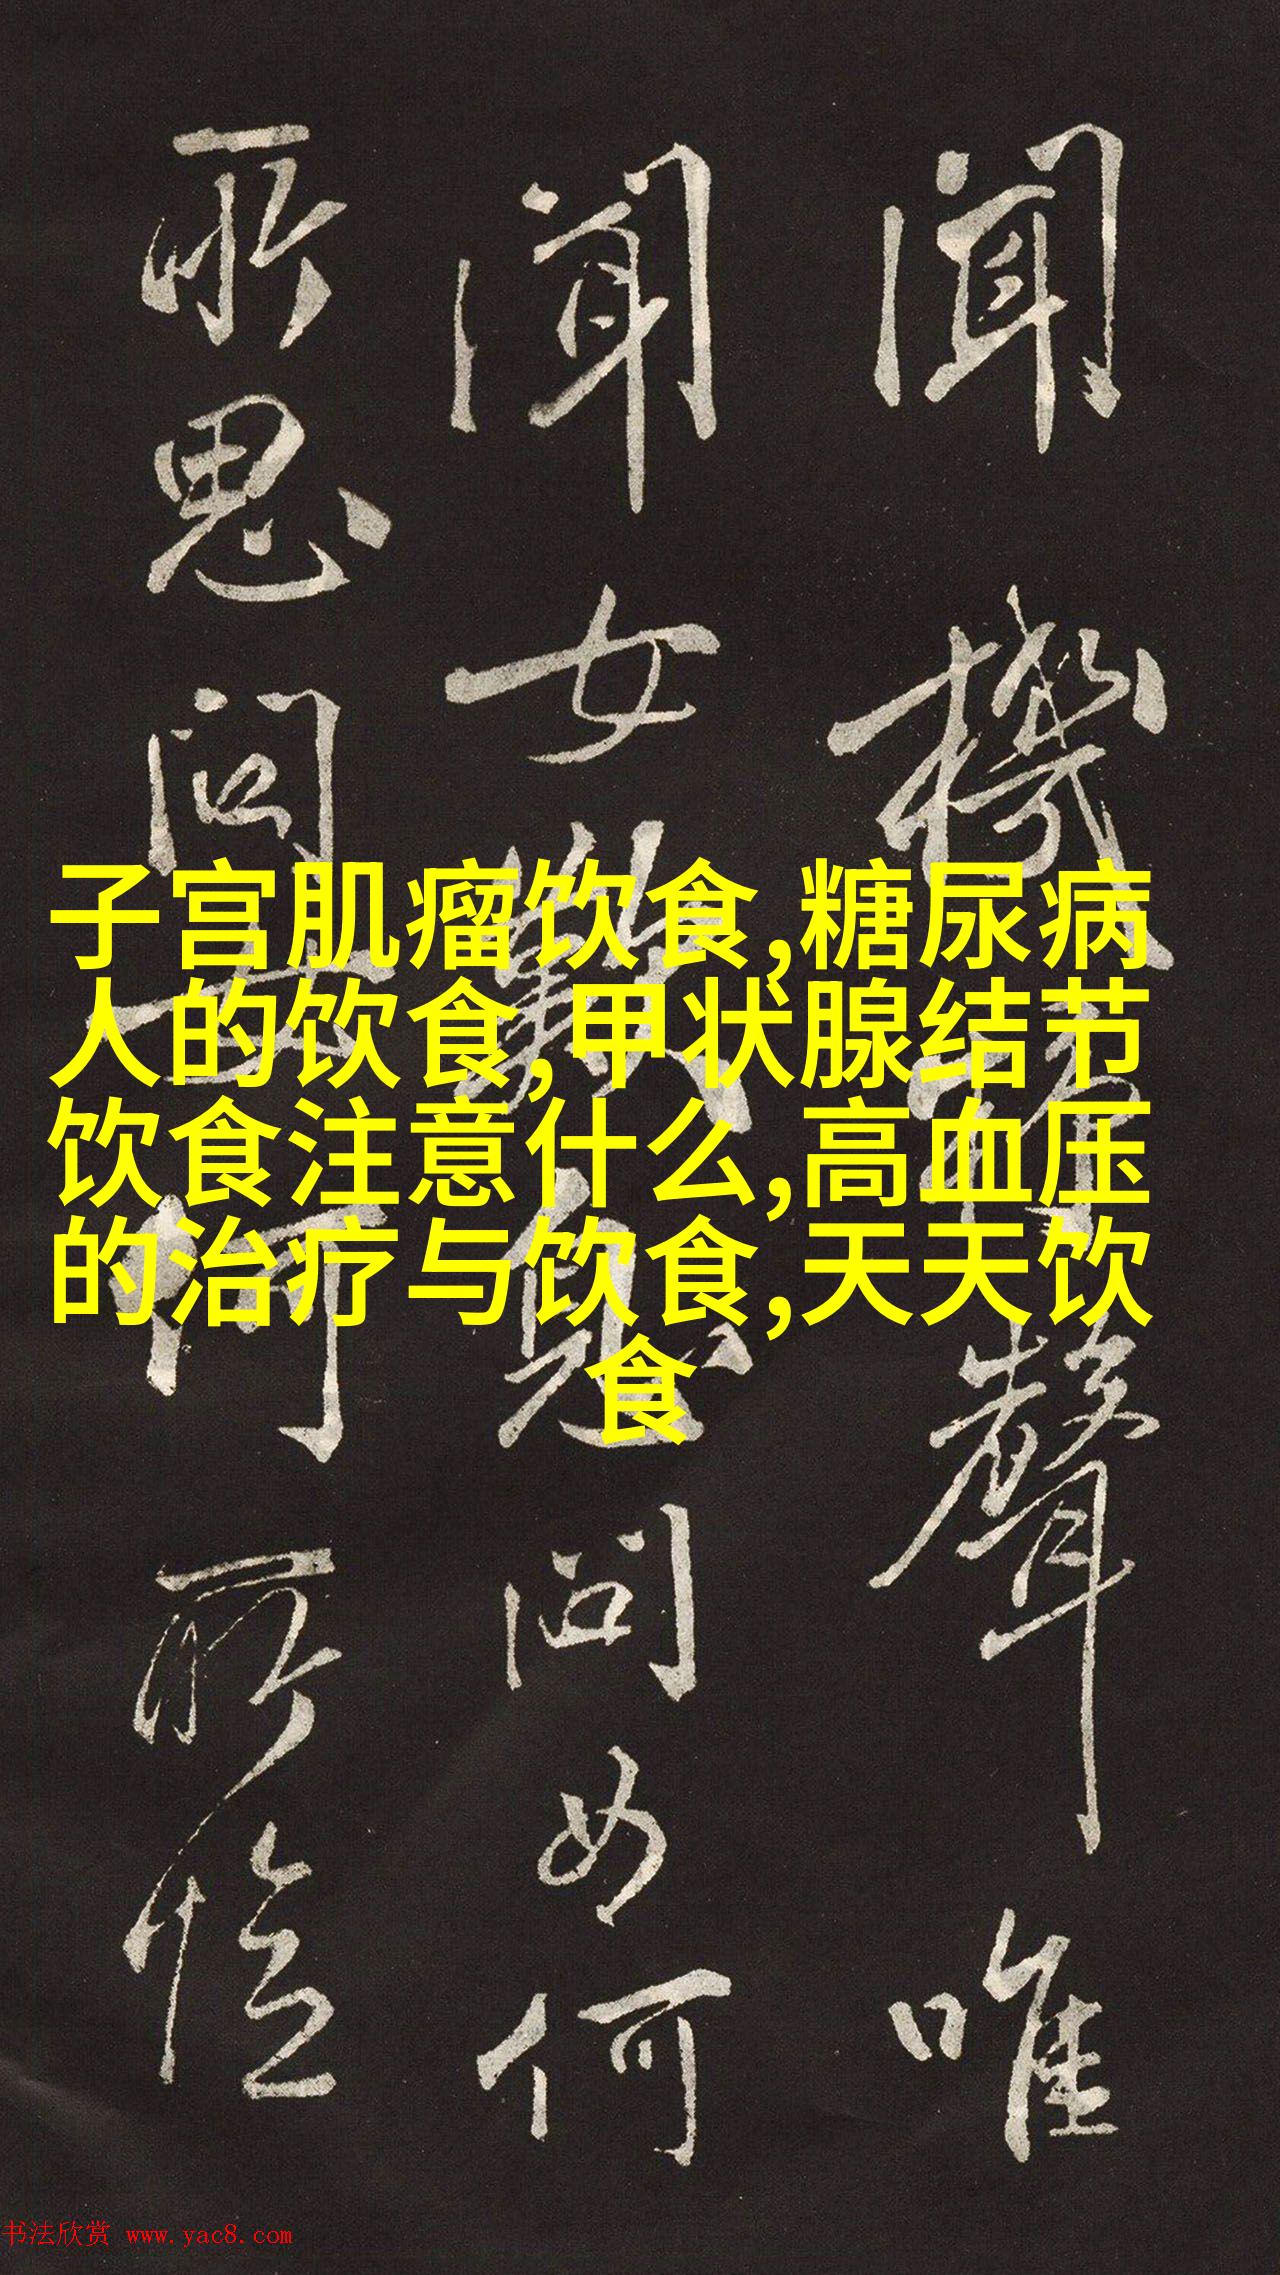 聞機杼聲唯
聞女歎息問女何
所思問女何所憶
子宫肌瘤饮食,糖尿病
人的饮食,甲状腺结节
饮食注意什么,高血压
的治疗与饮食,天天饮
食
书法欣赏 www.yac8.com